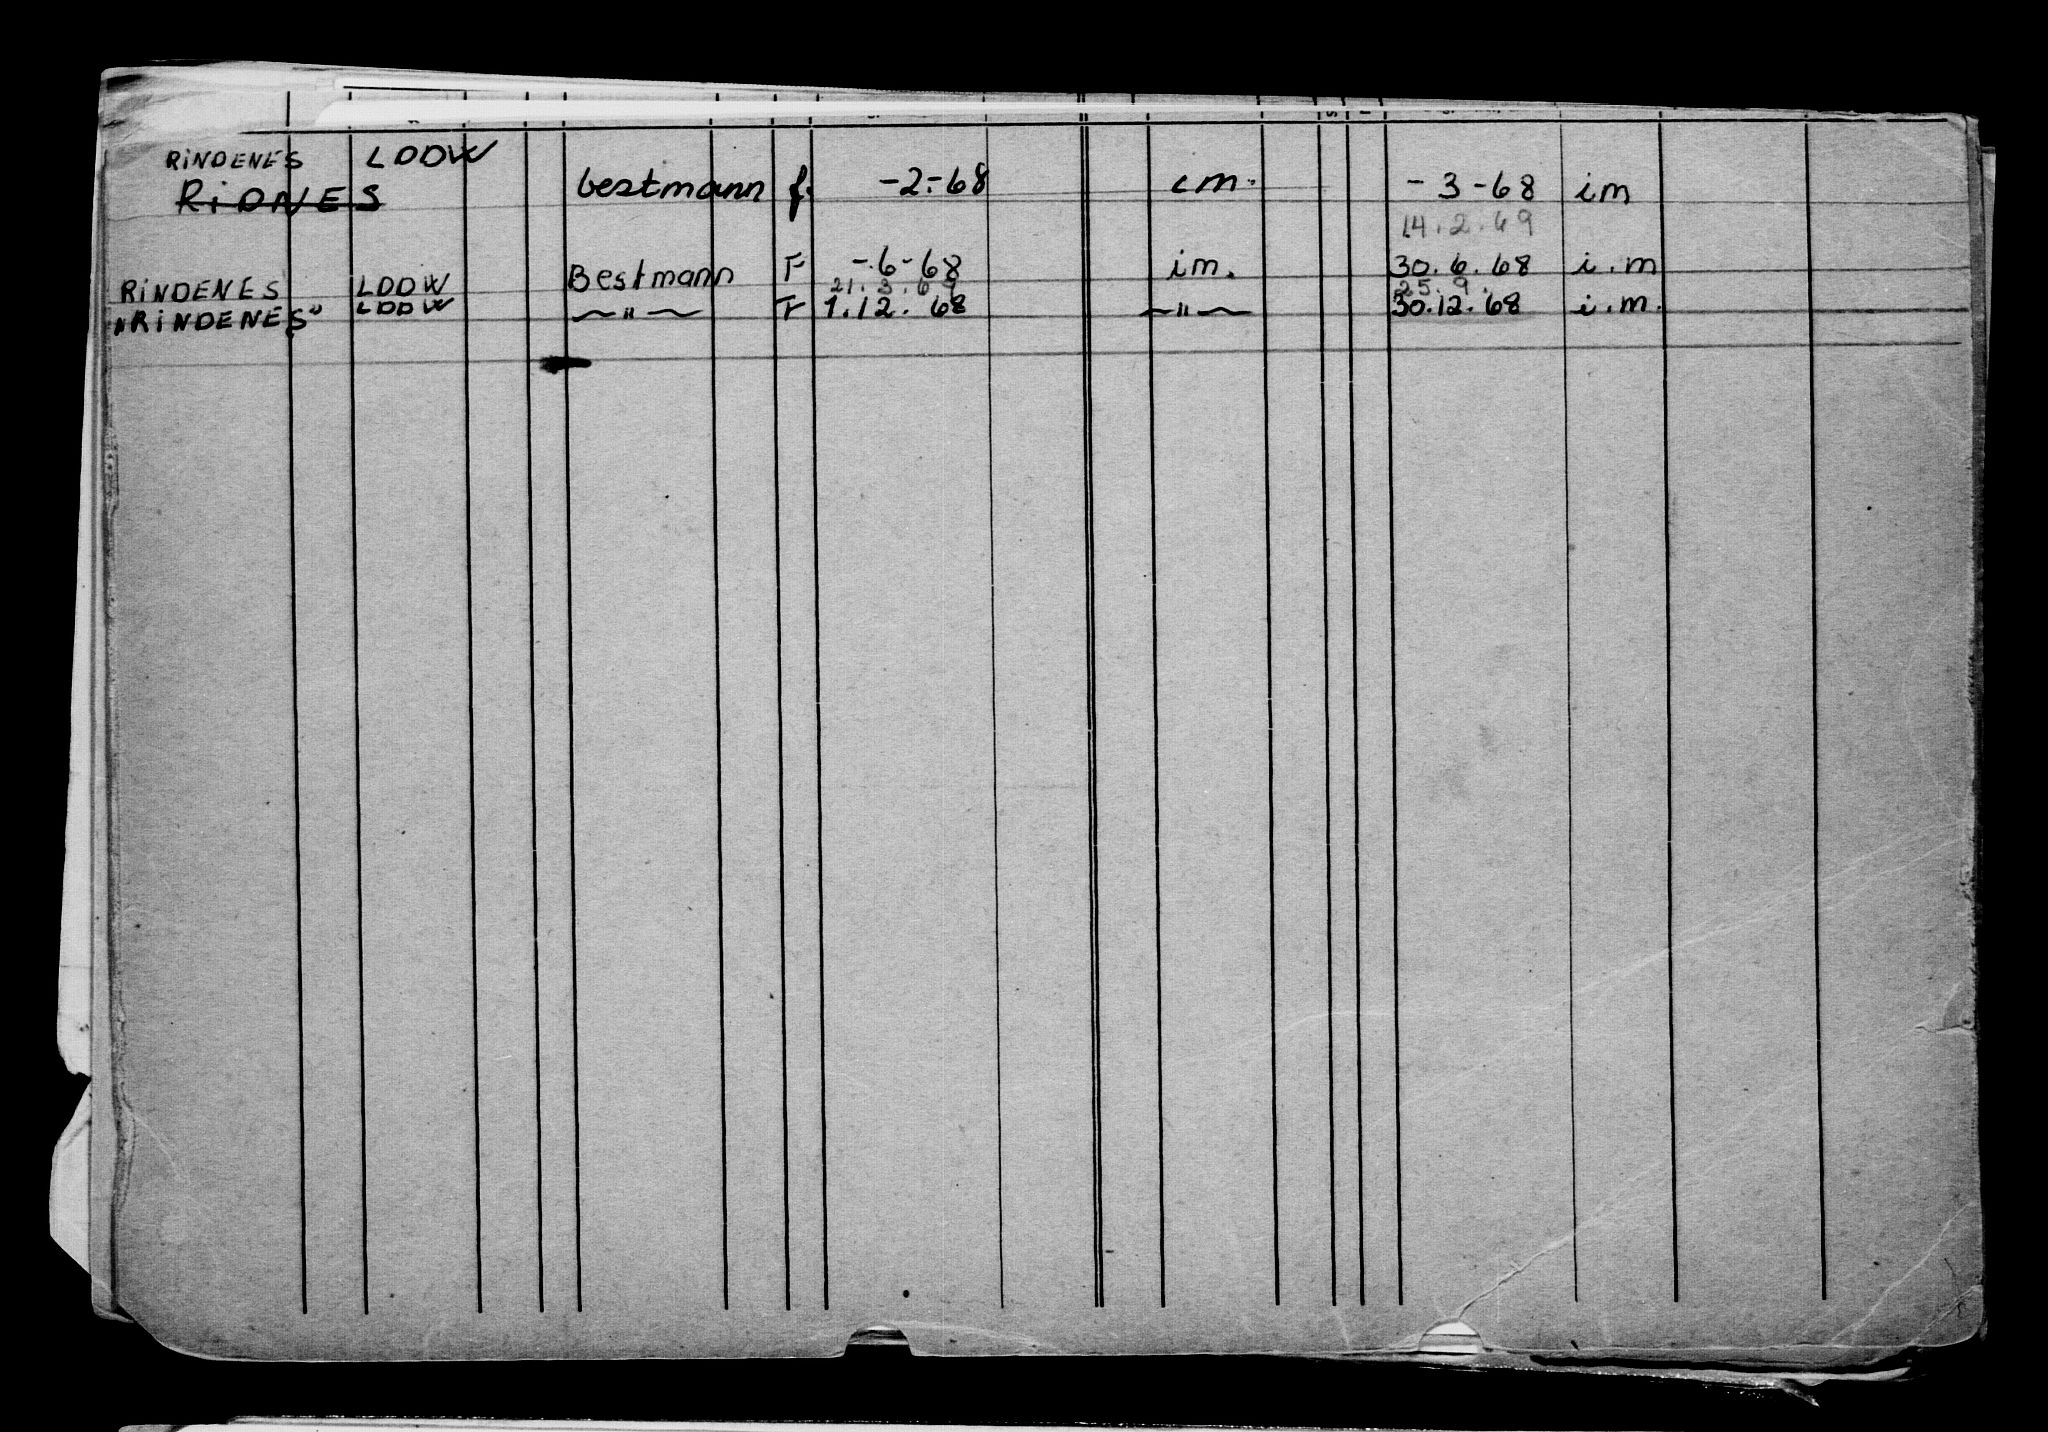 RINDENES LDDW
RiDNES bestmann f. -2-68 im. -3-68 im
14.2.69
RINDENES LDDW Bestmann F -.6-68 im. 30.6.68 i.m
21.3.69 25.9.
"RINDENES" LDDW —"— F 1.12.68 —"— 30.12.68 i.m.